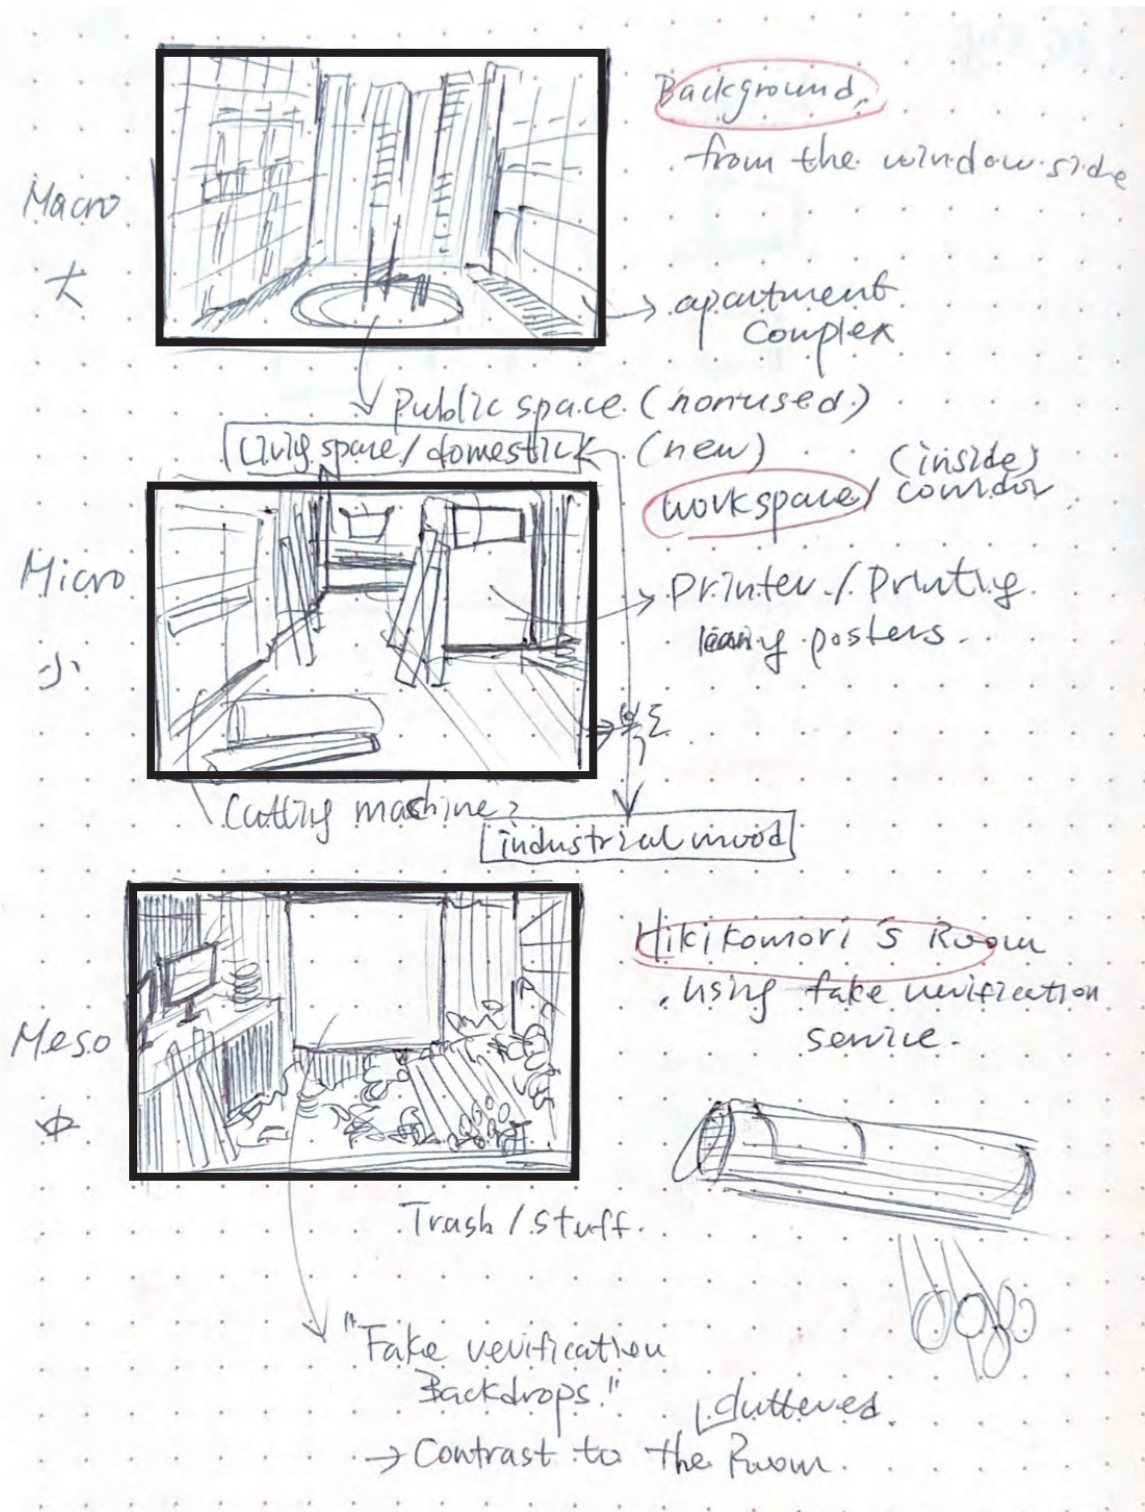 Background,
from the window side
Macro
大
apartment
complex
public space (nonused)
Living space / domestick
(new)
workspace /
(inside)
corridor
Micro
小
printer / printing
leaning posters.
Cutting machine?
industrial mood
Hikikomori's Room
using fake verification
service.
Meso
中
Trash / Stuff.
"Fake verification
Backdrops."
cluttered.
→ Contrast to the Room.